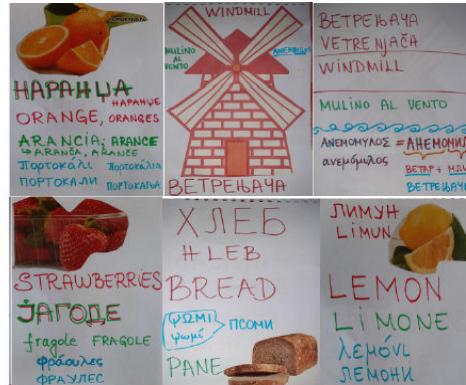 НАРАНЏА
НАРАНЏЕ
ORANGE, ORANGES
ARANCIA, ARANCE
Πορτοκάλι Πορτοκάλια
ПОРТОКАЛИ ПОРТОКАЉА
WINDMILL
MULINO AL VENTO
ВЕТРЕЊАЧА
ВЕТРЕЊАЧА
VETRENJAČA
WINDMILL
MULINO AL VENTO
ΑΝΕΜΟΜΥΛΟΣ = АНЕМОМИЛ
ανεμόμυλος
ВЕТАР +
ВЕТРЕЊАЧА
STRAWBERRIES
ЈАГОДЕ
fragole FRAGOLE
φράουλες
ФРАУЛЕС
ХЛЕБ
HLEB
BREAD
ΨΩΜΙ
ψωμί
ПСОМИ
PANE
ЛИМУН
LIMUN
LEMON
LIMONE
λεμόνι
ЛЕМОНИ